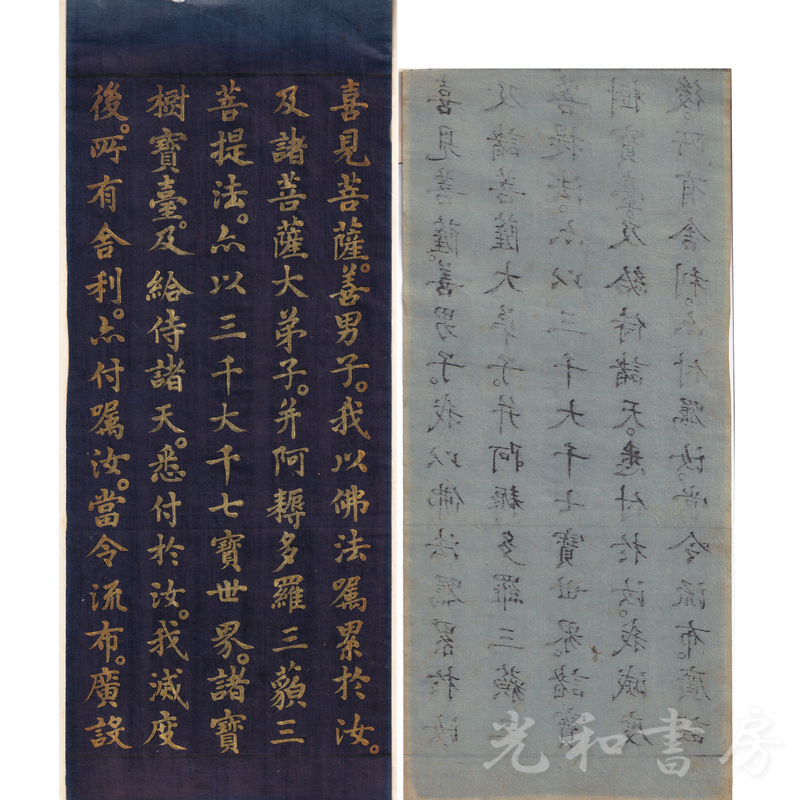 喜見菩薩。善男子。我以佛法嘱累於汝。
及諸菩薩大弟子。并阿耨多羅三藐三
菩提法。亦以三千大千七寶世界。諸寶
樹寶臺。及給侍諸天。悉付於汝。我滅度
後。所有舎利。亦付嘱汝。當令流布。廣設
喜見菩薩。善男子。我以佛法嘱累於汝
及諸菩薩大弟子。并阿耨多羅三藐
菩提法。亦以三千大千七寶世界。諸寶
樹寶臺。及給侍諸天。悉付於汝。我滅度
後。所有舎利。亦付嘱汝。當令流布。廣設
光和書房